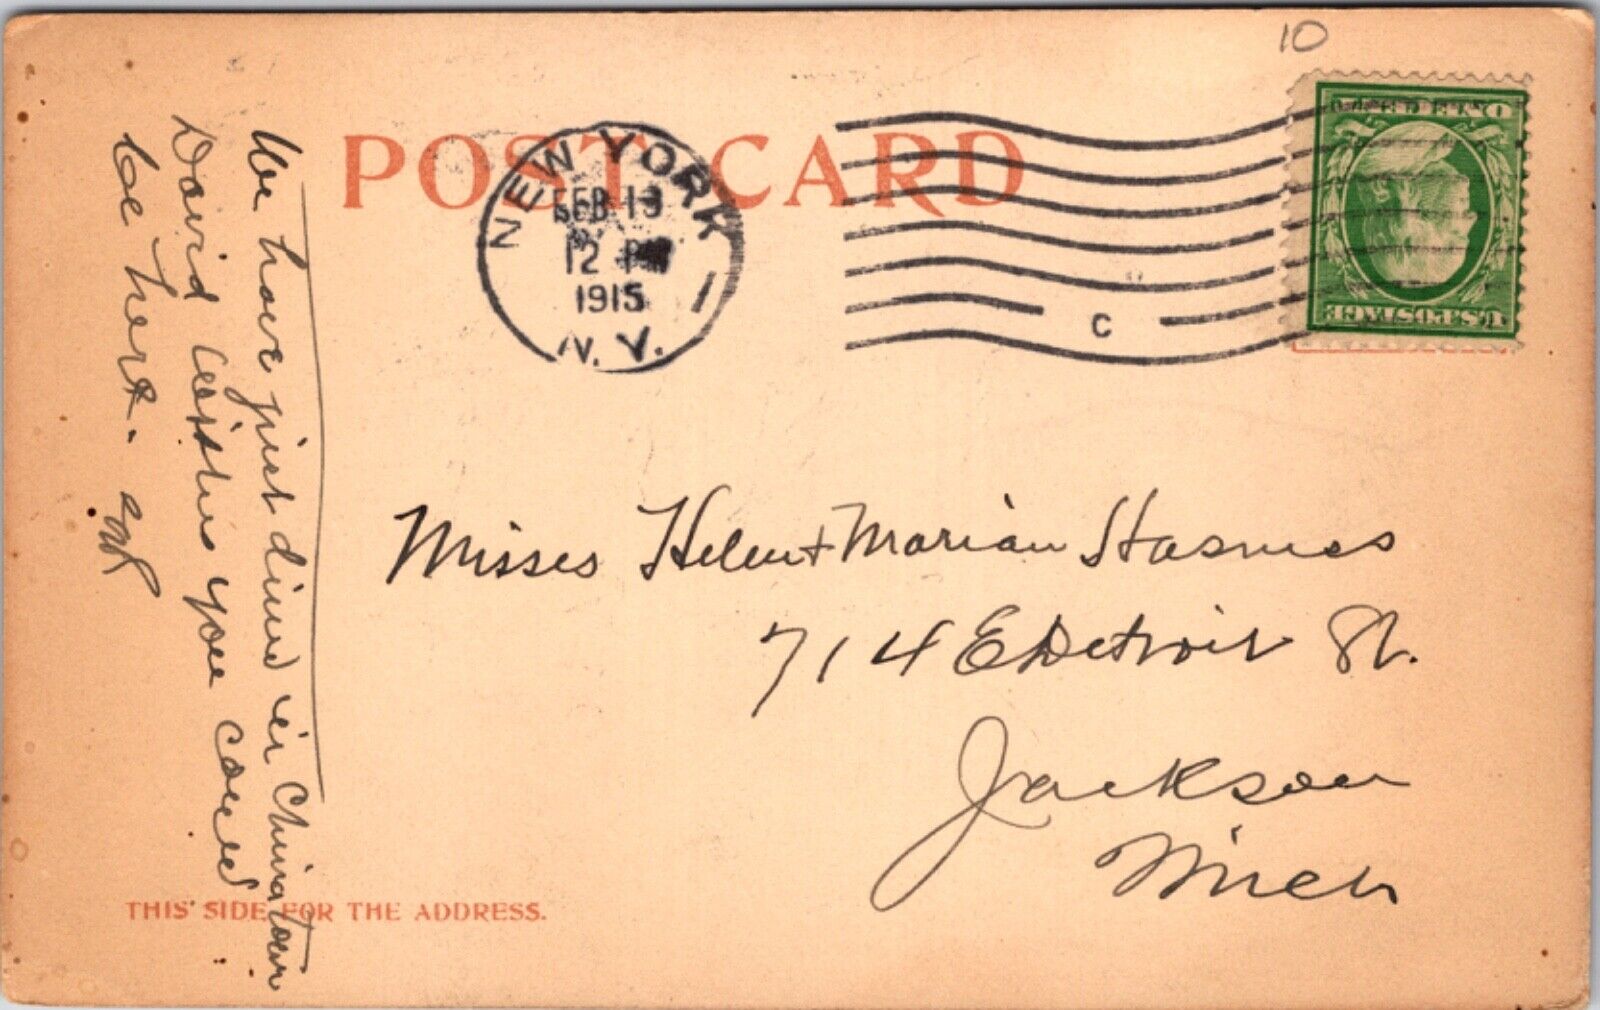 10
POST CARD
NEW YORK
FEB 13
12 PM
1915
N. Y.
C
U.S. POSTAGE
We have just dined in Chinatown
David wishes you could
be here.
Misses Helen + Marian
714 E Detroit St.
Jackson
Mich
THIS SIDE FOR THE ADDRESS.